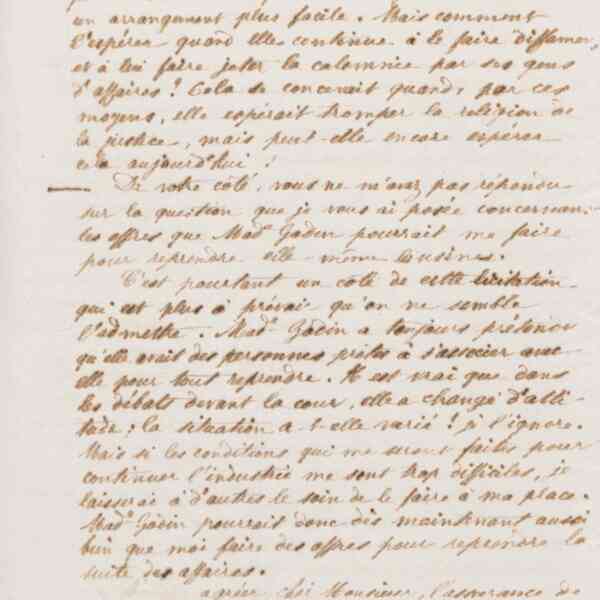 un arrangement plus facile. Mais comment
l'espérer quand elle continue à le faire diffamer,
et à lui faire jeter la calomnie par ses gens
d'affaires ! Cela se concevait quand, par ces
moyens, elle espérait tromper la religion de
la justice, mais peut-elle encore espérer
cela aujourd'hui !
De votre côté, vous ne m'avez pas répondu
sur la question que je vous ai posée concernant
les offres que Mad.e Godin pourrait me faire
pour reprendre elle-même les usines.
C'est pourtant un côté de cette licitation
qui est plus à prévoir qu'on ne semble
l'admettre. Mad.e Godin a toujours prétendu
qu'elle avait des personnes prêtes à s'associer avec
elle pour tout reprendre. Il est vrai que dans
les débats devant la cour, elle a changé d'atti-
tude ; la situation a-t-elle varié ! je l'ignore.
Mais si les conditions qui me seront faites pour
continuer l'industrie me sont trop difficiles, je
laisserai à d'autres le soin de le faire à ma place.
Mad.e Godin pourrait donc dès maintenant aussi
bien que moi faire des offres pour reprendre la
suite des affaires.
agréer cher Monsieur, l'assurance de